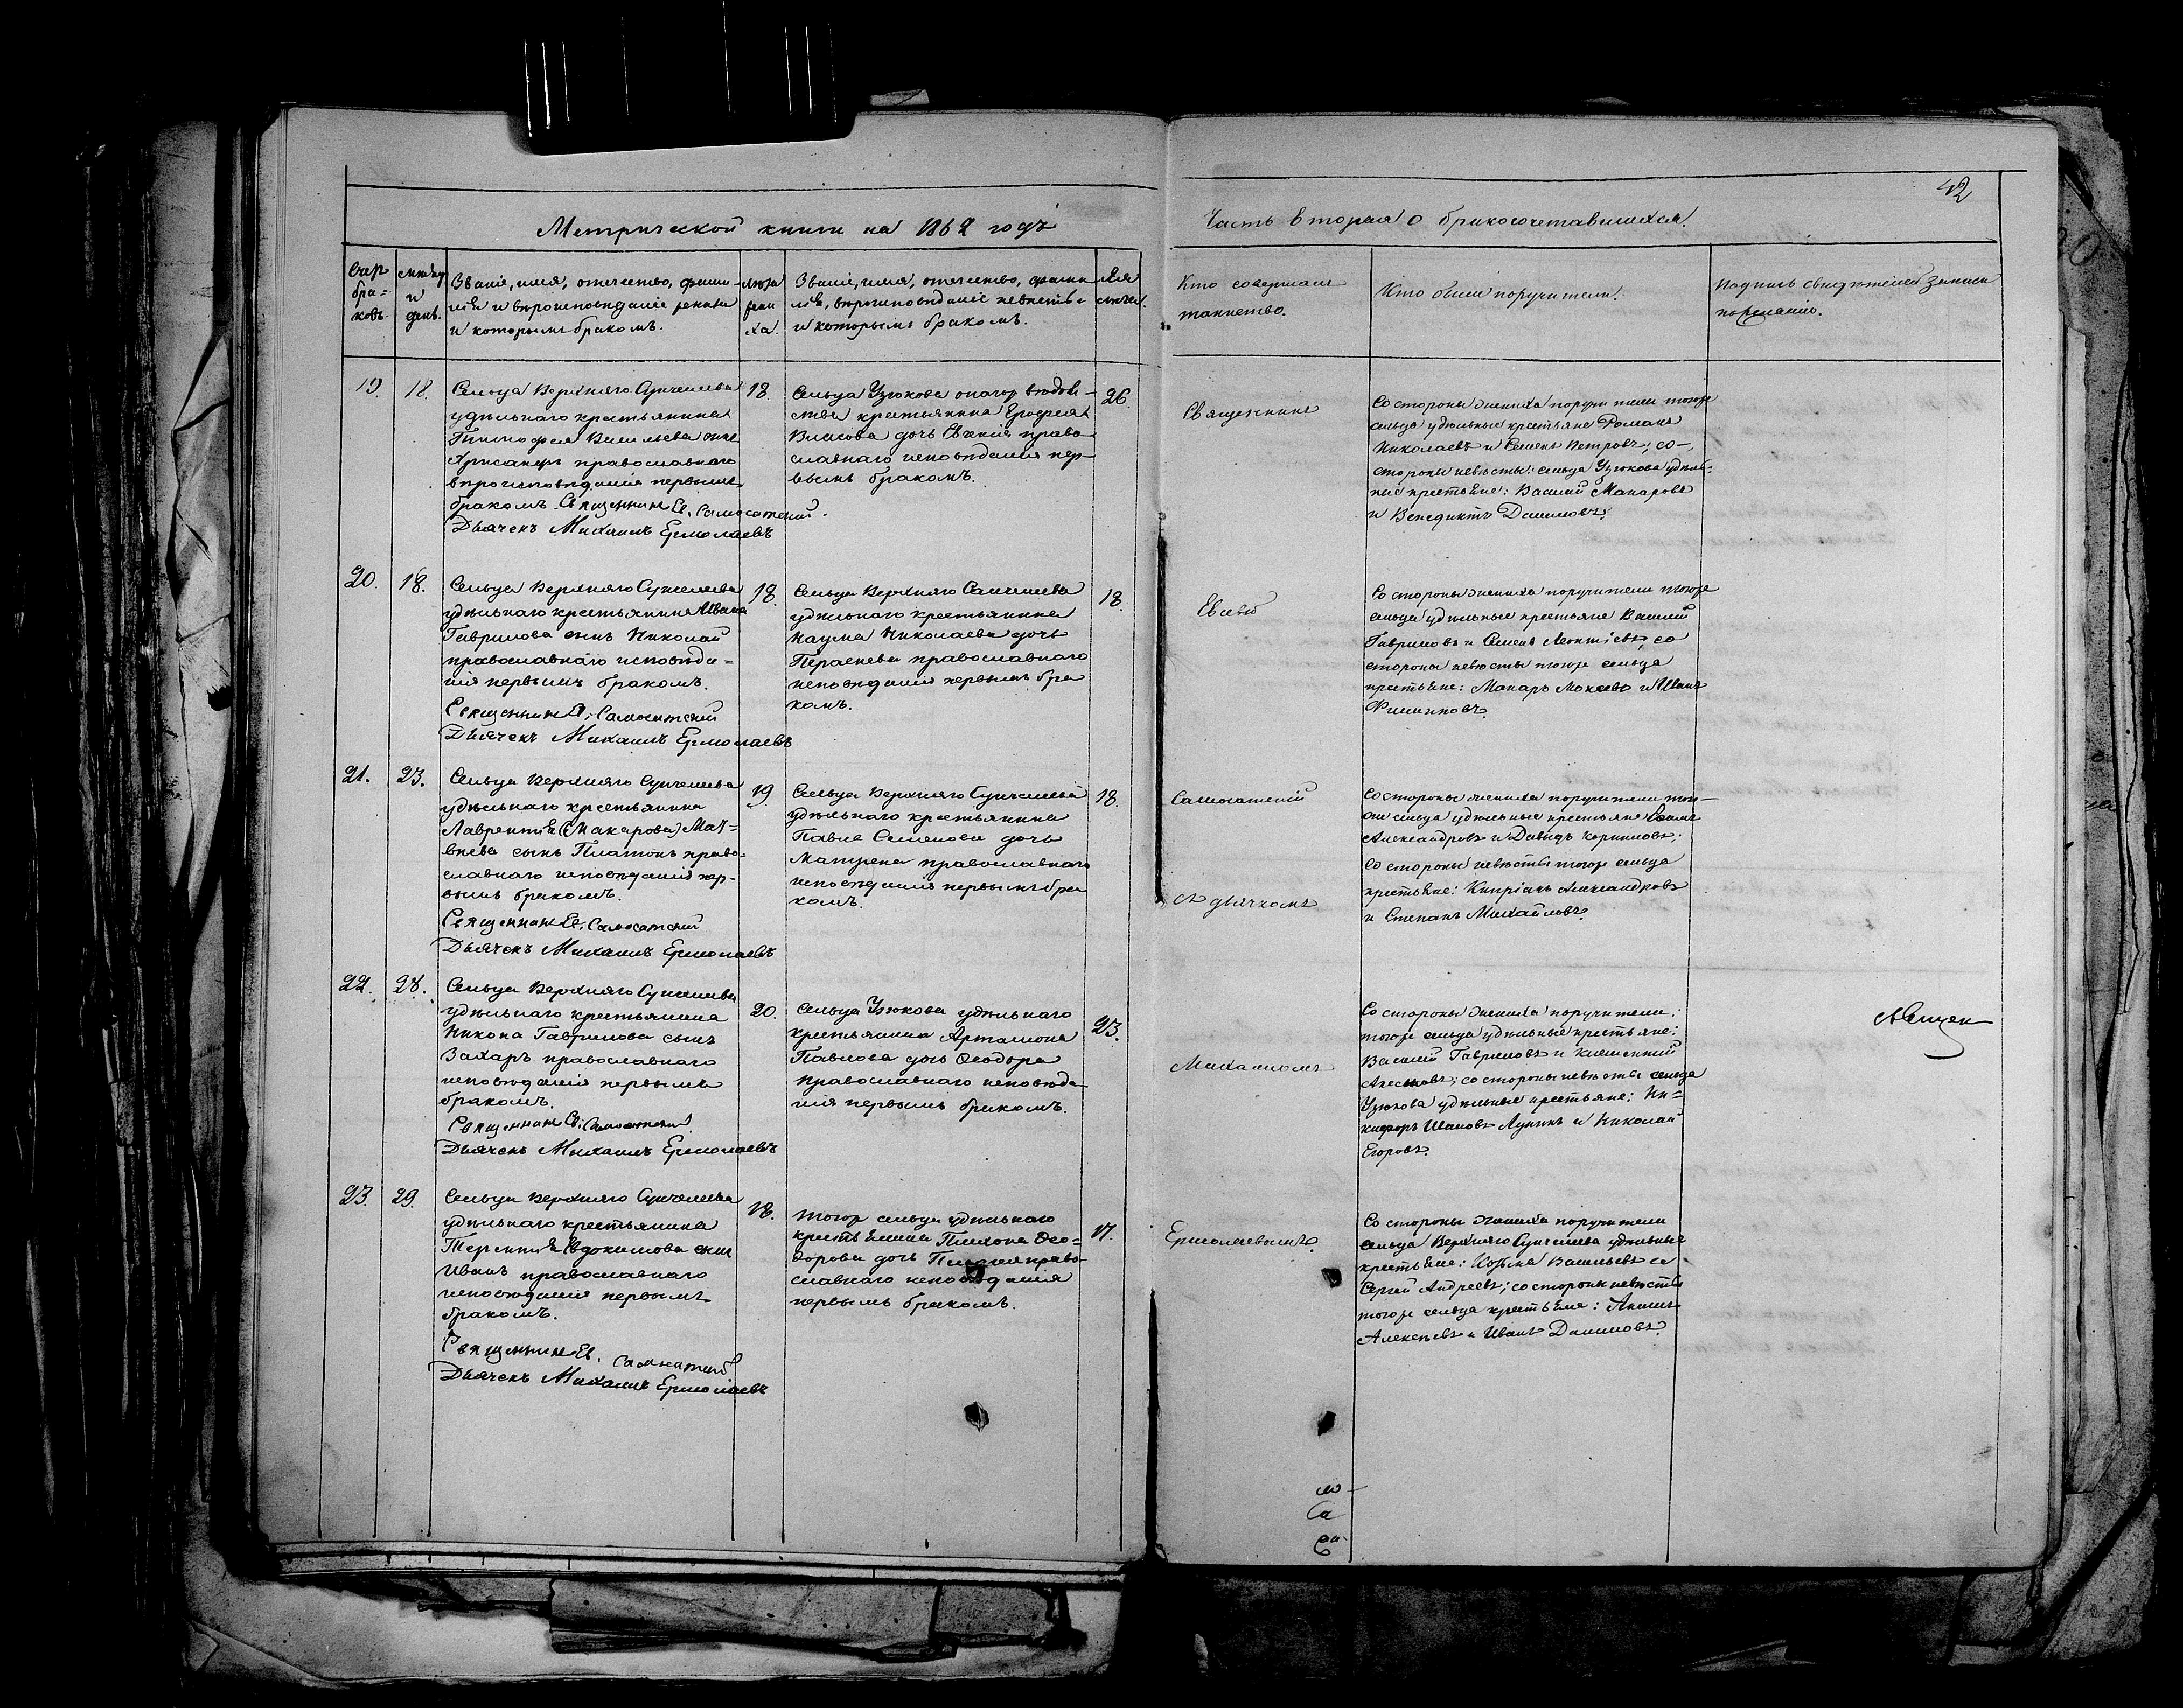 42
Метрической книги на 1862 годъ
Часть вторая о бракосочетавшихся.
Счер
бра=
ковъ.
и
день.
Званіе, имя, отечество, фами-
лія и вѣроисповѣданіе жениха
и которымъ бракомъ.
лѣта
жени
ха.
Званіе, имя, отечество, фами
лія, вѣроисповѣданіе невѣсты
и которымъ бракомъ.
Кто совершалъ
таинство.
Кто были поручители.
Подпись свидѣтелей записи
по желанію.
19. 18.
Сельца Верхняго Сунчелеева
удѣльнаго крестьянина
Тимофея Васильева сынъ
православнаго
вѣроисповѣданія первымъ
бракомъ. Священникъ Ев. Самосатскій.
Дьячекъ Михаилъ Ермолаевъ
18.
Сельца Узюкова
крестьянина Ерофея
Власова дочь Евгенія право
славнаго исповѣданія пер-
вымъ бракомъ.
26.
Священникъ
Со стороны жениха поручители тогоже
сельца удѣльные крестьяне Романъ
Николаевъ и Семенъ Петровъ; со-
стороны невѣсты: сельца Узюкова удѣль-
ные крестьяне: Василій Макаровъ
и Венедиктъ Даниловъ.
20. 18.
Сельца Верхняго Сунчелеева
удѣльнаго крестьянина Ивана
Гаврилова сынъ Николай
православнаго исповѣда=
нія первымъ бракомъ.
Священникъ Ев. Самосатскій
Дьячекъ Михаилъ Ермолаевъ
18.
Сельца Верхняго
удѣльнаго крестьянина
Наума Николаева дочь
православнаго
исповѣданія первымъ бра
комъ.
18.
Евсевій
Со стороны жениха поручители тогоже
сельца удѣльные крестьяне Василій
Гавриловъ и Семенъ Леонтіевъ, со
стороны невѣсты тогоже сельца
крестьяне: Макаръ Мокеевъ и Иванъ
Филиповъ.
21. 23.
Сельца Верхняго Сунчелеева
удѣльнаго крестьянина
Лаврентія (Макарова) Мат=
вѣева сынъ Платонъ право=
славнаго исповѣданія пер-
вымъ бракомъ.
Священникъ Ев. Самосатскій
Дьячекъ Михаилъ Ермолаевъ
19.
Сельца Верхняго Сунчелеева
удѣльнаго крестьянина
Павла Семенова дочь
Матрена православнаго
исповѣданія первымъ бра
комъ.
18.
Самосатскій
съ дьячкомъ
Со стороны жениха поручители того-
же сельца удѣльные крестьяне
Александровъ и Давидъ Корниловъ;
Со стороны невѣсты тогоже сельца
крестьяне: Кипріанъ Александровъ
и Степанъ Михайловъ.
22. 28.
Сельца Верхняго Сунчелеева
удѣльнаго крестьянина
Никона Гаврилова сынъ
Захаръ православнаго
исповѣданія первымъ
бракомъ.
Священникъ Ев. Самосатскій
Дьячекъ Михаилъ Ермолаевъ
20.
Сельца Узюкова удѣльнаго
крестьянина Артамона
Павлова дочь Ѳеодора
православнаго исповѣда
нія первымъ бракомъ.
23.
Михаиломъ
Со стороны жениха поручители:
тогоже сельца удѣльные крестьяне:
Василій Гавриловъ и
со стороны невѣсты сельца
Узюкова удѣльные крестьяне: Ни=
кифоръ Ивановъ и Николай
Егоровъ.
23. 29.
Сельца Верхняго Сунчелеева
удѣльнаго крестьянина
Терентія Евдокимова сынъ
Иванъ православнаго
исповѣданія первымъ
бракомъ.
Священникъ Ев. Самосатскій
Дьячекъ Михаилъ Ермолаевъ
18.
Тогоже сельца удѣльнаго
крестьянина Тихона Ѳео=
дорова дочь право-
славнаго исповѣданія
первымъ бракомъ.
17.
Ермолаевымъ.
Со стороны жениха поручители
сельца Верхняго Сунчелеева удѣльные
крестьяне: Козьма Васильевъ и
Сергей Андреевъ; со стороны невѣсты
тогоже сельца крестьяне:
Алексѣевъ и Иванъ Даниловъ.